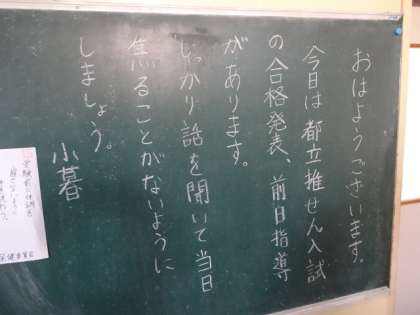 おはようございます。
今日は都立推せん入試
の合格発表、前日指導
があります。
しっかり話を聞いて当日
焦ることがないように
しましょう。
小暮